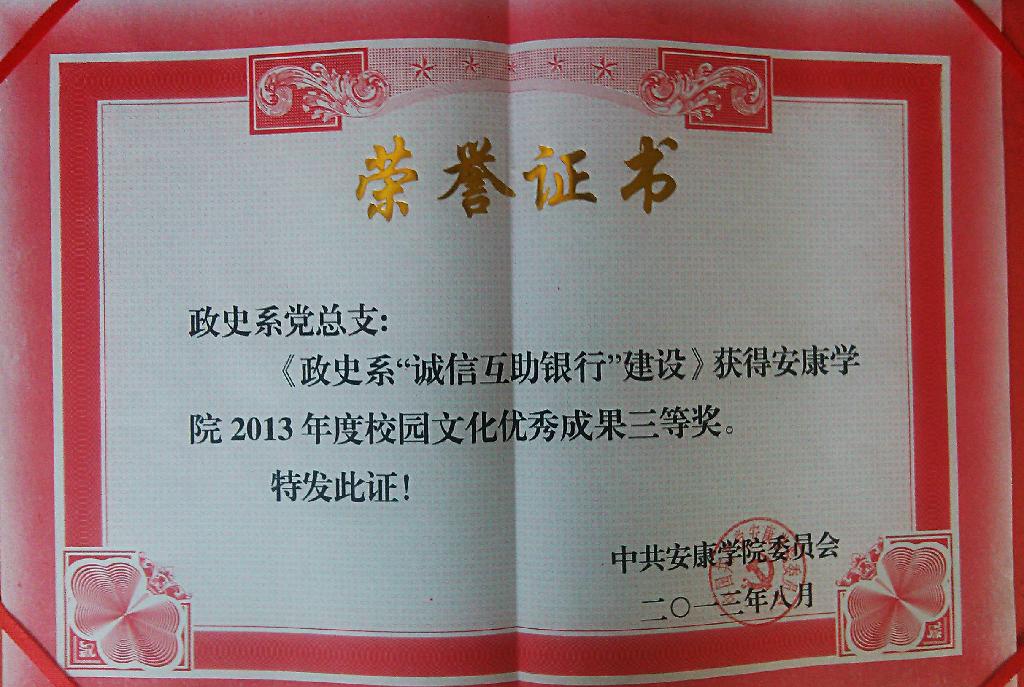 荣誉证书
政史系党总支:
《政史系“诚信互助银行”建设》获得安康学
院 2013 年度校园文化优秀成果三等奖。
特发此证!
中共安康学院委员会
二〇一三年八月